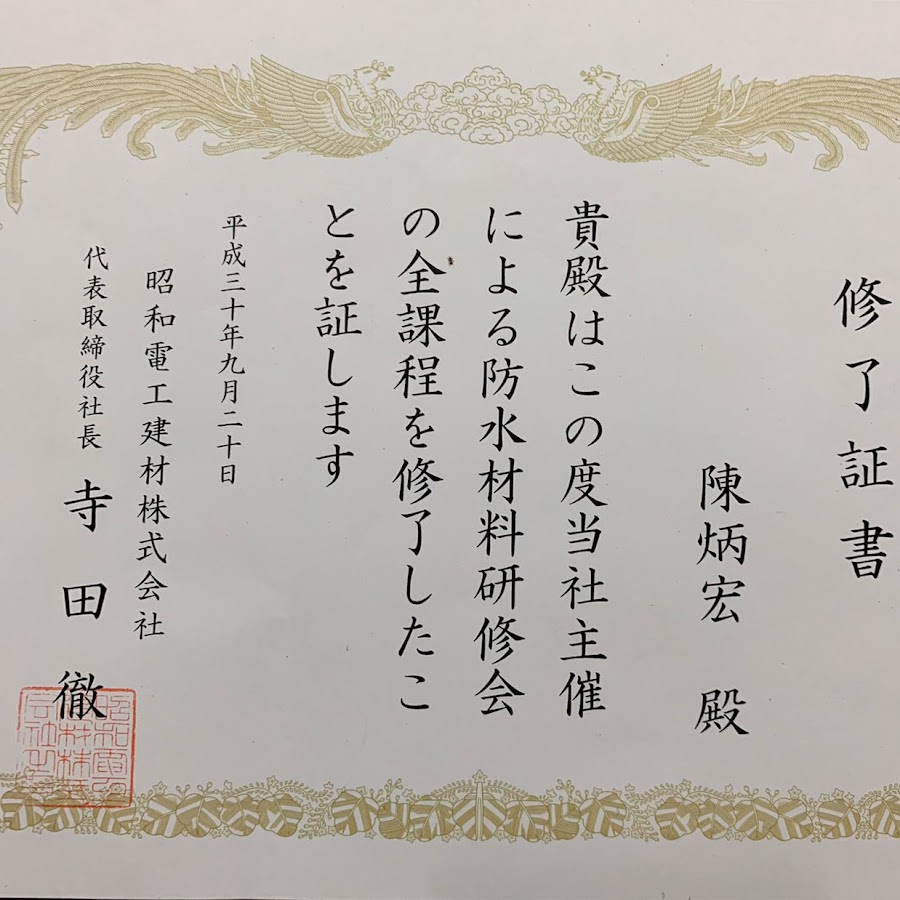 修了証書
陳炳宏 殿
貴殿はこの度当社主催
による防水材料研修会
の全課程を修了したこ
とを証します
平成三十年九月二十日
昭和電工建材株式会社
代表取締役社長 寺田徹